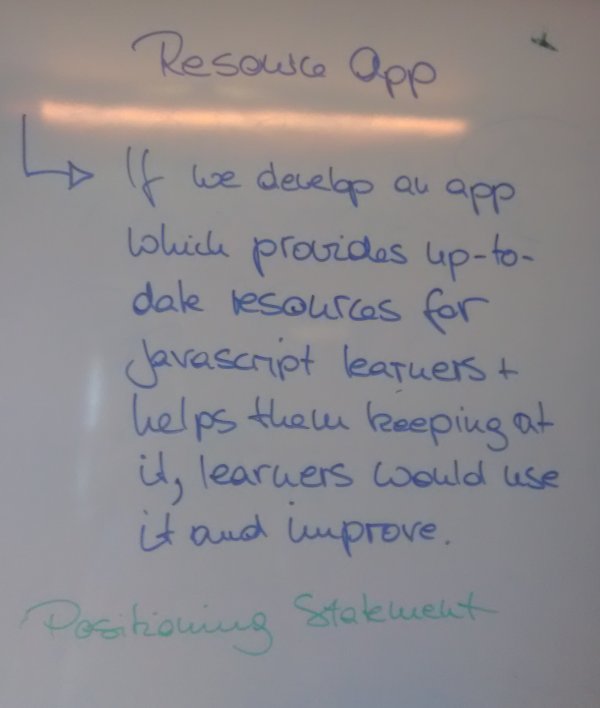 Resource App
If we develop an app
which provides up-to-
date resources for
Javascript learners +
helps them keeping at
it, learners would use
it and improve.
Positioning Statement